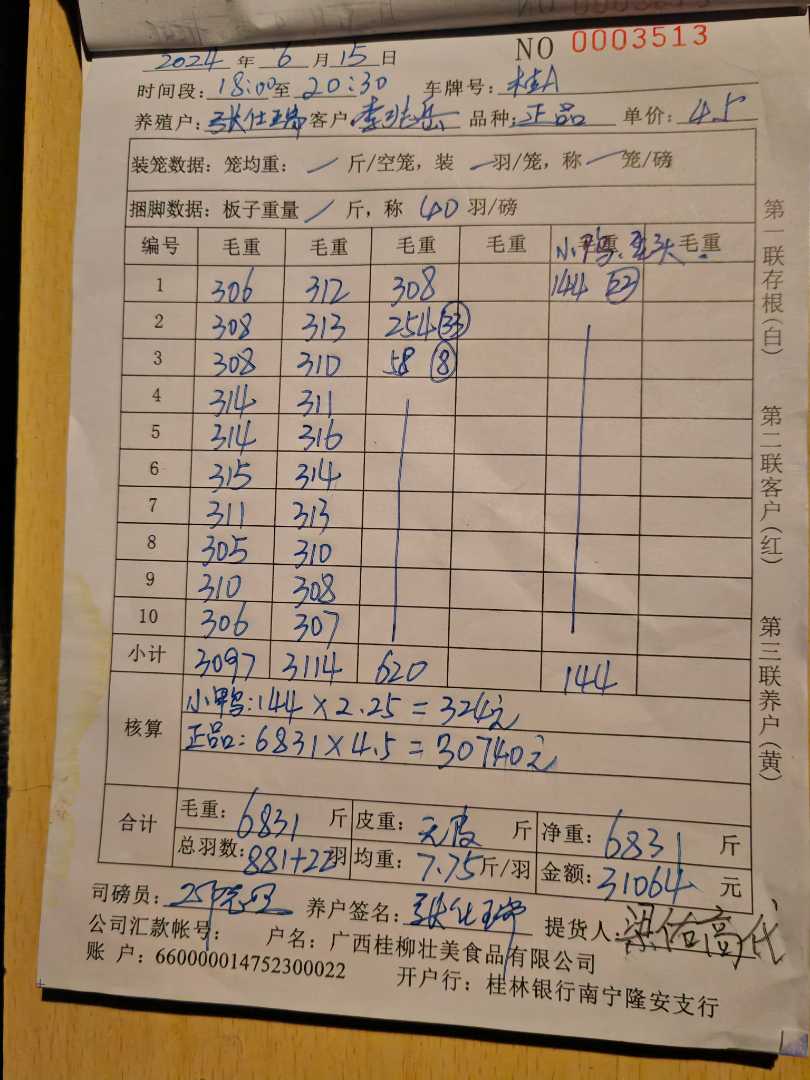 NO 0003513
2024 年 6 月 15 日
时间段: 18:00 至 20:30 车牌号: 桂A
养殖户: 张仕瑞 客户: 品种: 正品 单价: 4.5
装笼数据: 笼均重: / 斤/空笼, 装 一 羽/笼, 称 一 笼/磅
捆脚数据: 板子重量 / 斤, 称 40 羽/磅
编号 毛重 毛重 毛重 毛重 小鸭 毛重 毛重
1 306 312 308 144 22
2 308 313 254 33
3 308 310 58 8
4 314 311
5 314 316
6 315 314
7 311 313
8 305 310
9 310 308
10 306 307
小计 3097 3114 620 144
核算 小鸭: 144 × 2.25 = 324元
正品: 6831 × 4.5 = 30740元
合计 毛重: 6831 斤 皮重: 无皮 斤 净重: 6831 斤
总羽数: 881+22 羽 均重: 7.75 斤/羽 金额: 31064 元
司磅员: 养户签名: 张仕瑞 提货人:
公司汇款帐号: 户名: 广西桂柳壮美食品有限公司
账 户: 660000014752300022 开户行: 桂林银行南宁隆安支行
第一联存根(白)
第二联客户(红)
第三联养户(黄)